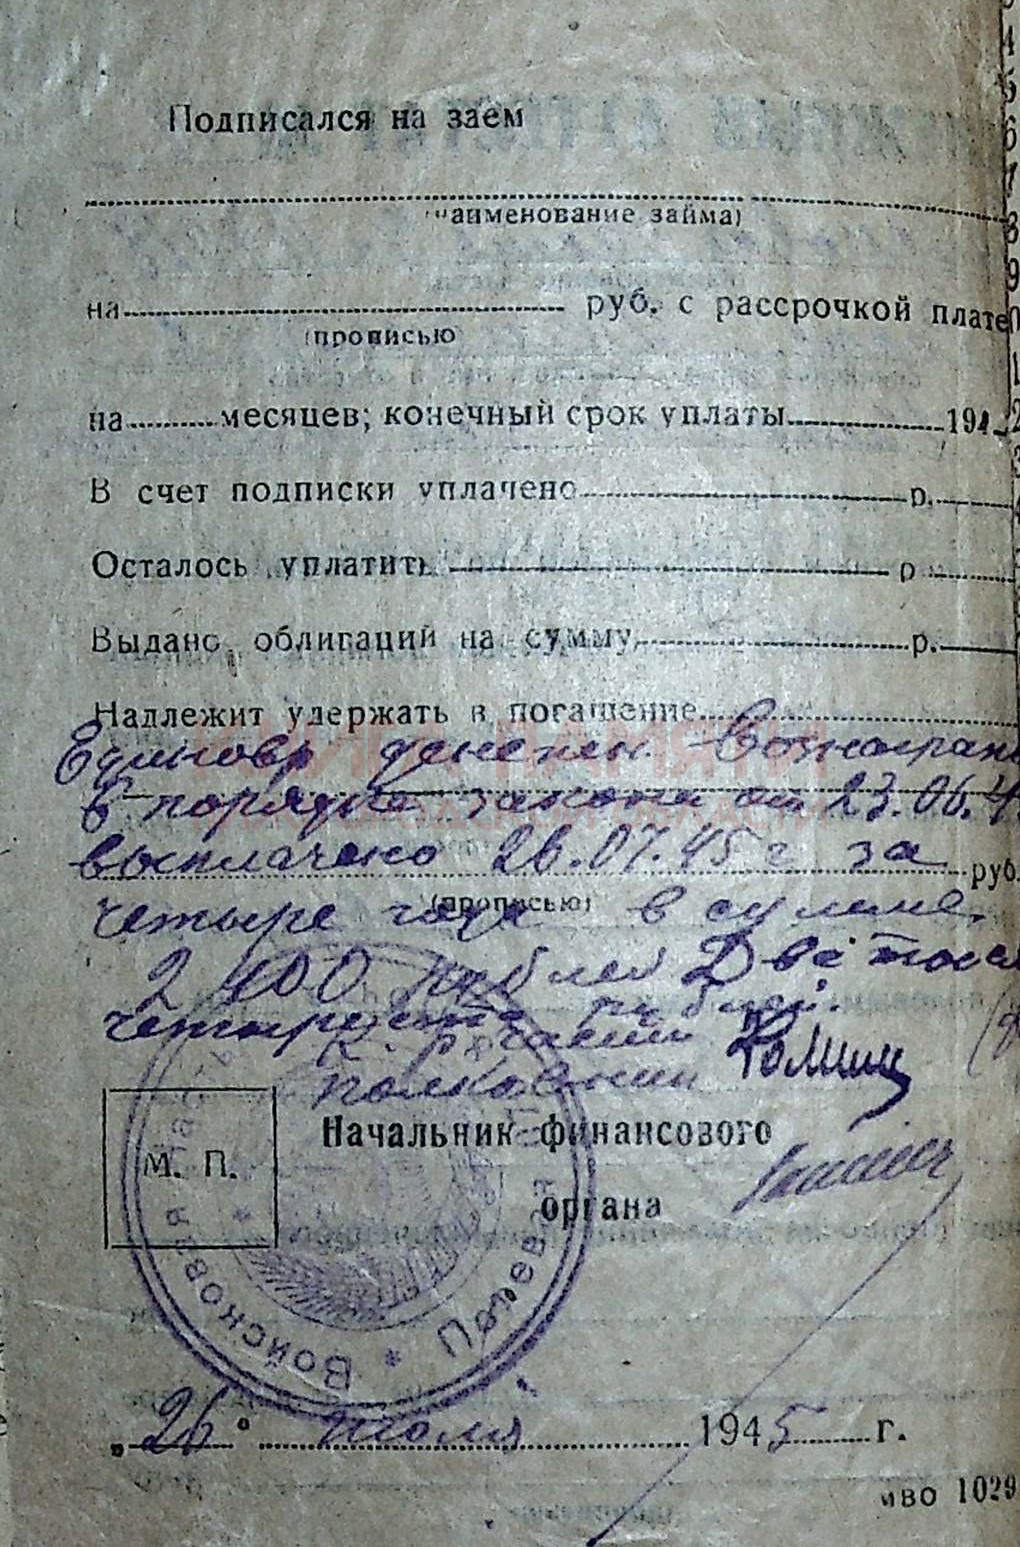 Подписался на заем
(наименование займа)
на руб. с рассрочкой плате
(прописью)
на месяцев; конечный срок уплаты 194
В счет подписки уплачено р.
Осталось уплатить р
Выдано облигаций на сумму р.
Надлежит удержать в погашение
Единовр денежн вознагражд
в порядке закона от 23.06.4
выплачено 26.07.45 г за
руб.
(прописью)
четыре года в сумме
2 400 рублей Два тыся
четыреста рублей.
полковник
Начальник финансового
М. П.
органа
Войсковая Полевая
„26" июля 1945 г.
ИВО 1029
КНИГА ПАМЯТИ